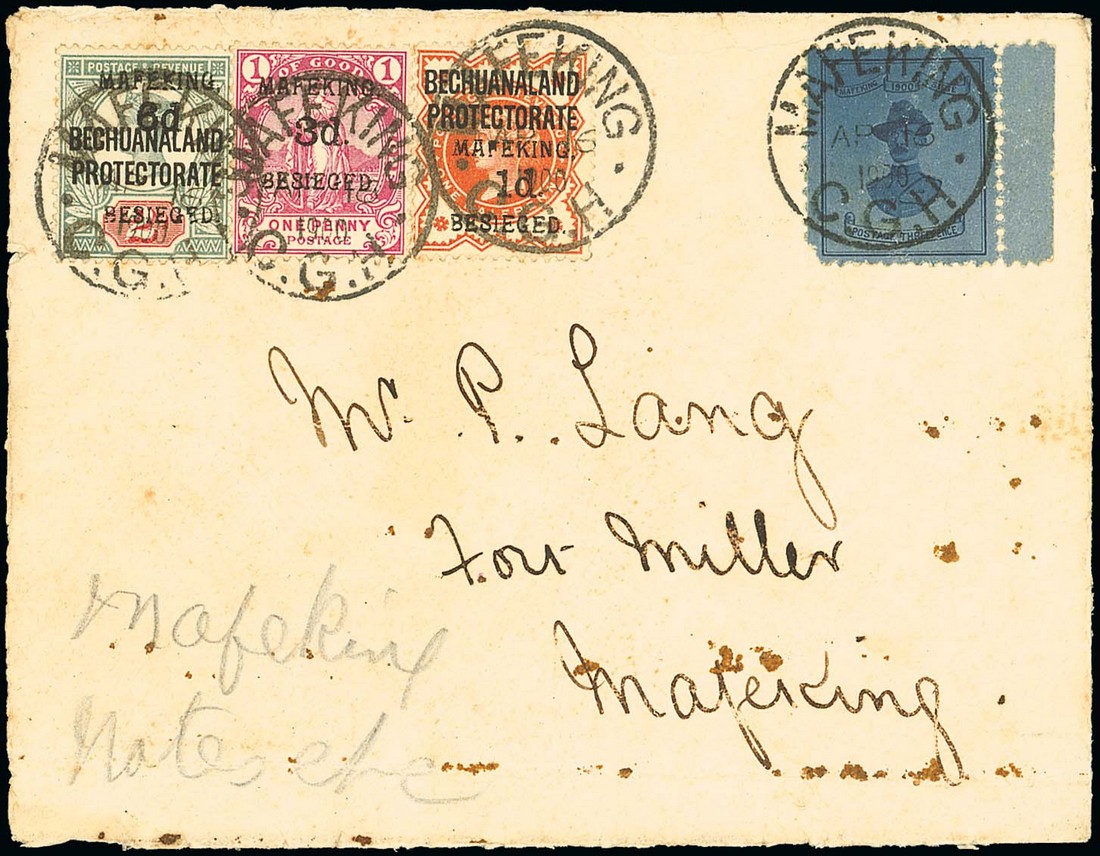 POSTAGE & REVENUE
MAFEKING,
6d.
BECHUANALAND
PROTECTORATE
BESIEGED.
1 OF GOOD 1
MAFEKING,
3d.
BESIEGED.
ONE PENNY
POSTAGE
BECHUANALAND
PROTECTORATE
MAFEKING,
1d.
BESIEGED.
MAFEKING 1900
POSTAGE THREEPENCE
MAFEKING
C.G.H
MAFEKING
C.G.H
MAFEKING
C.G.H
MAFEKING
AP
1900
C.G.H
Mr. P. Lang
Fort Miller
Mafeking.
Mafeking
Notes etc